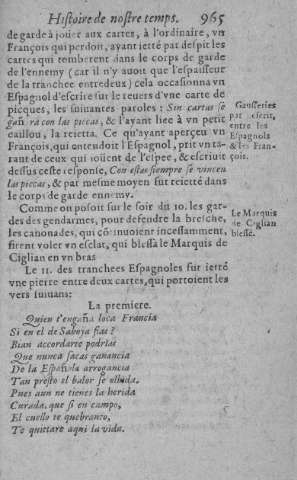 Histoire de nostre temps. 965
de garde à joüer aux cartes, à l'ordinaire, vn
François qui perdoit, ayant ietté par despit les
cartes qui tomberent dans le corps de garde
de l'ennemy (car il n'y auoit que l'espaisseur
de la tranchee entredeux) cela occasionna vn
Espagnol d'escrire sur le reuers d'vne carte de
picques, les suiuantes paroles : Sin cartas se
gañ rà con las piccas, & l'ayant liee à vn petit
caillou, la reietta. Ce qu'ayant aperçeu vn
François, qui entendoit l'Espagnol, prit vn ta-
raut de ceux qui ioüent de l'espee, & escriuit
dessus ceste response, Con estas siempre se vincen
las piccas, & par mesme moyen fut reietté dans
le corps de garde ennemy.
Gausseries
par escrit,
entre les
Espagnols
& les Fran-
çois.
Comme on posoit sur le soir du 10. les gar-
des des gendarmes, pour defendre la bresche,
les canonades, qui cõtinuoient incessamment,
firent voler vn esclat, qui blessa le Marquis de
Ciglian en vn bras
Le Marquis
de Ciglian
blessé.
Le 11. des tranchees Espagnoles fut iettè
vne pierre entre deux cartes, qui portoient les
vers suiuans:
La premiere.
Quien t'engaña loca Francia
Si en el de Saboja fias ?
Bian accordarte podrias
Que nunca sacas ganancia
De la Española arrogancia
Tan presto el balor se olluda.
Pues aun ne tienes la herida
Curada, que si en campo,
El cuello te quebranto,
Te quittare aqui la vida.